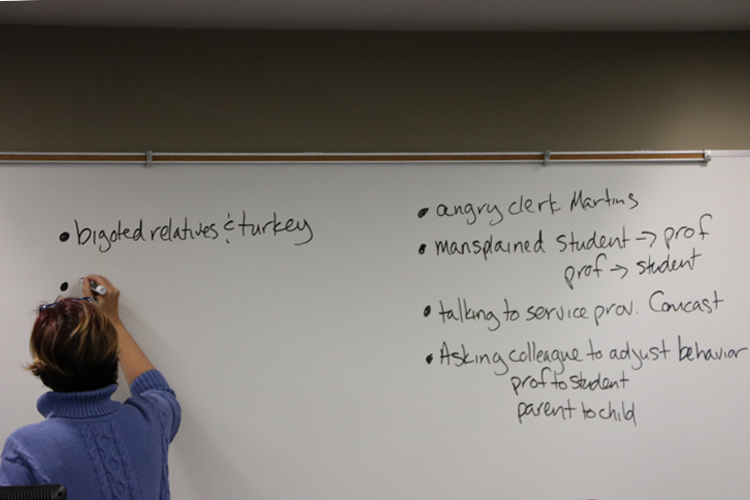 • bigoted relatives & turkey
•
• angry clerk Martins
• mansplained student → prof
prof → student
• talking to service prov. Comcast
• Asking colleague to adjust behavior
prof to student
parent to child